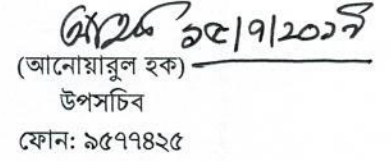 ১৫/৭/২০১৭
(আনোয়ারুল হক)
উপসচিব
ফোন: ৯৫৭৭৪২৫